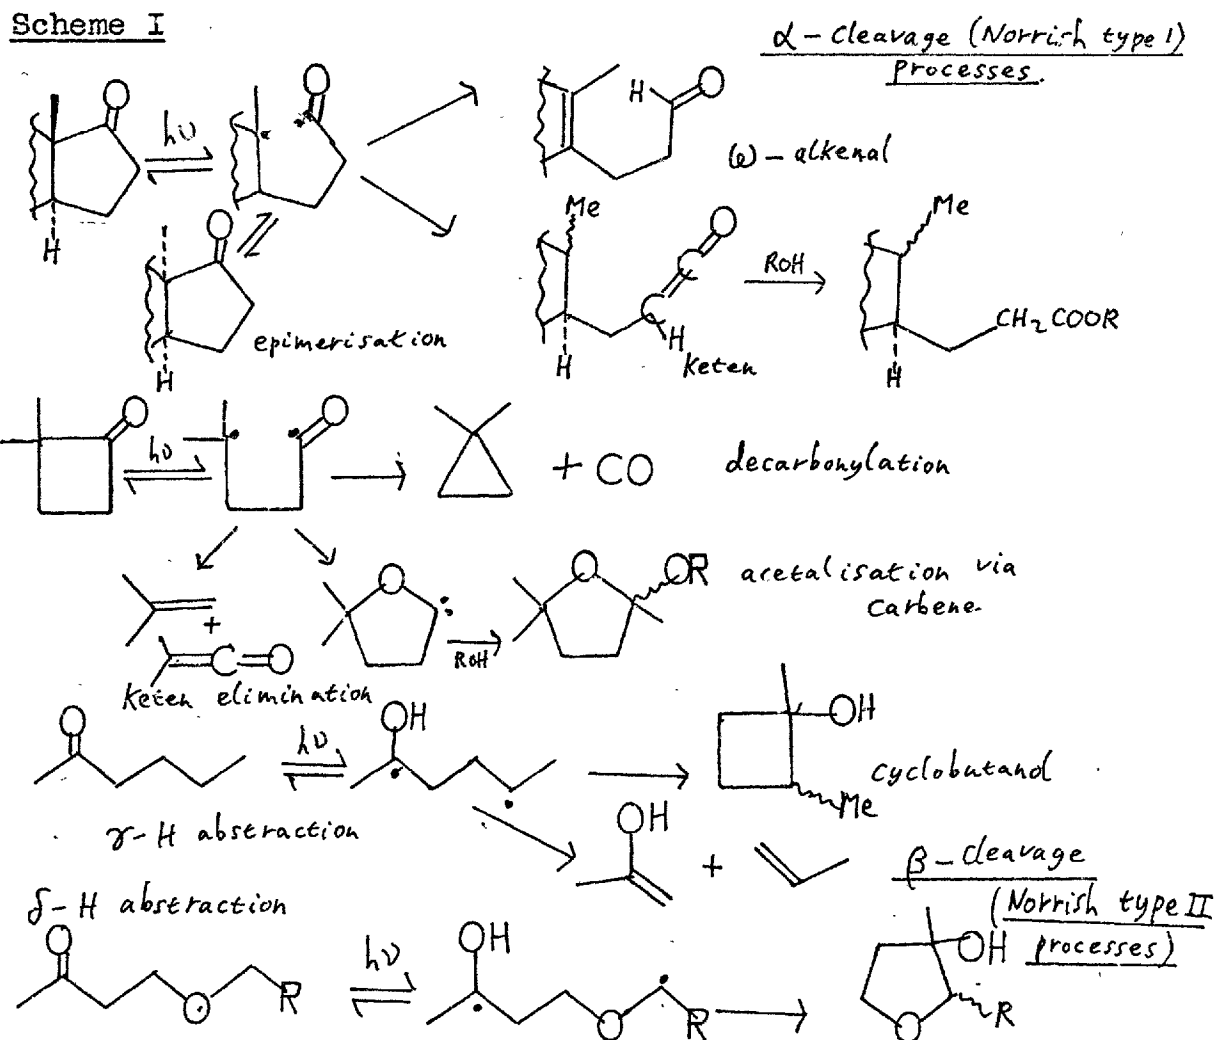 Scheme I
α-Cleavage (Norrish type 1)
processes.
hυ
H
O
H
O
ω-alkenal
O
H
epimerisation
Me
O
C
C
H
H
Keten
ROH
Me
CH2COOR
H
O
hυ
O
+ CO
decarbonylation
+
C
O
Keten elimination
O
ROH
O
OR
acetalisation via
carbene.
O
hυ
OH
OH
Me
cyclobutanol
γ-H abstraction
OH
+
β-cleavage
(Norrish type II
processes)
δ-H abstraction
O
O
R
hυ
OH
O
R
OH
R
O